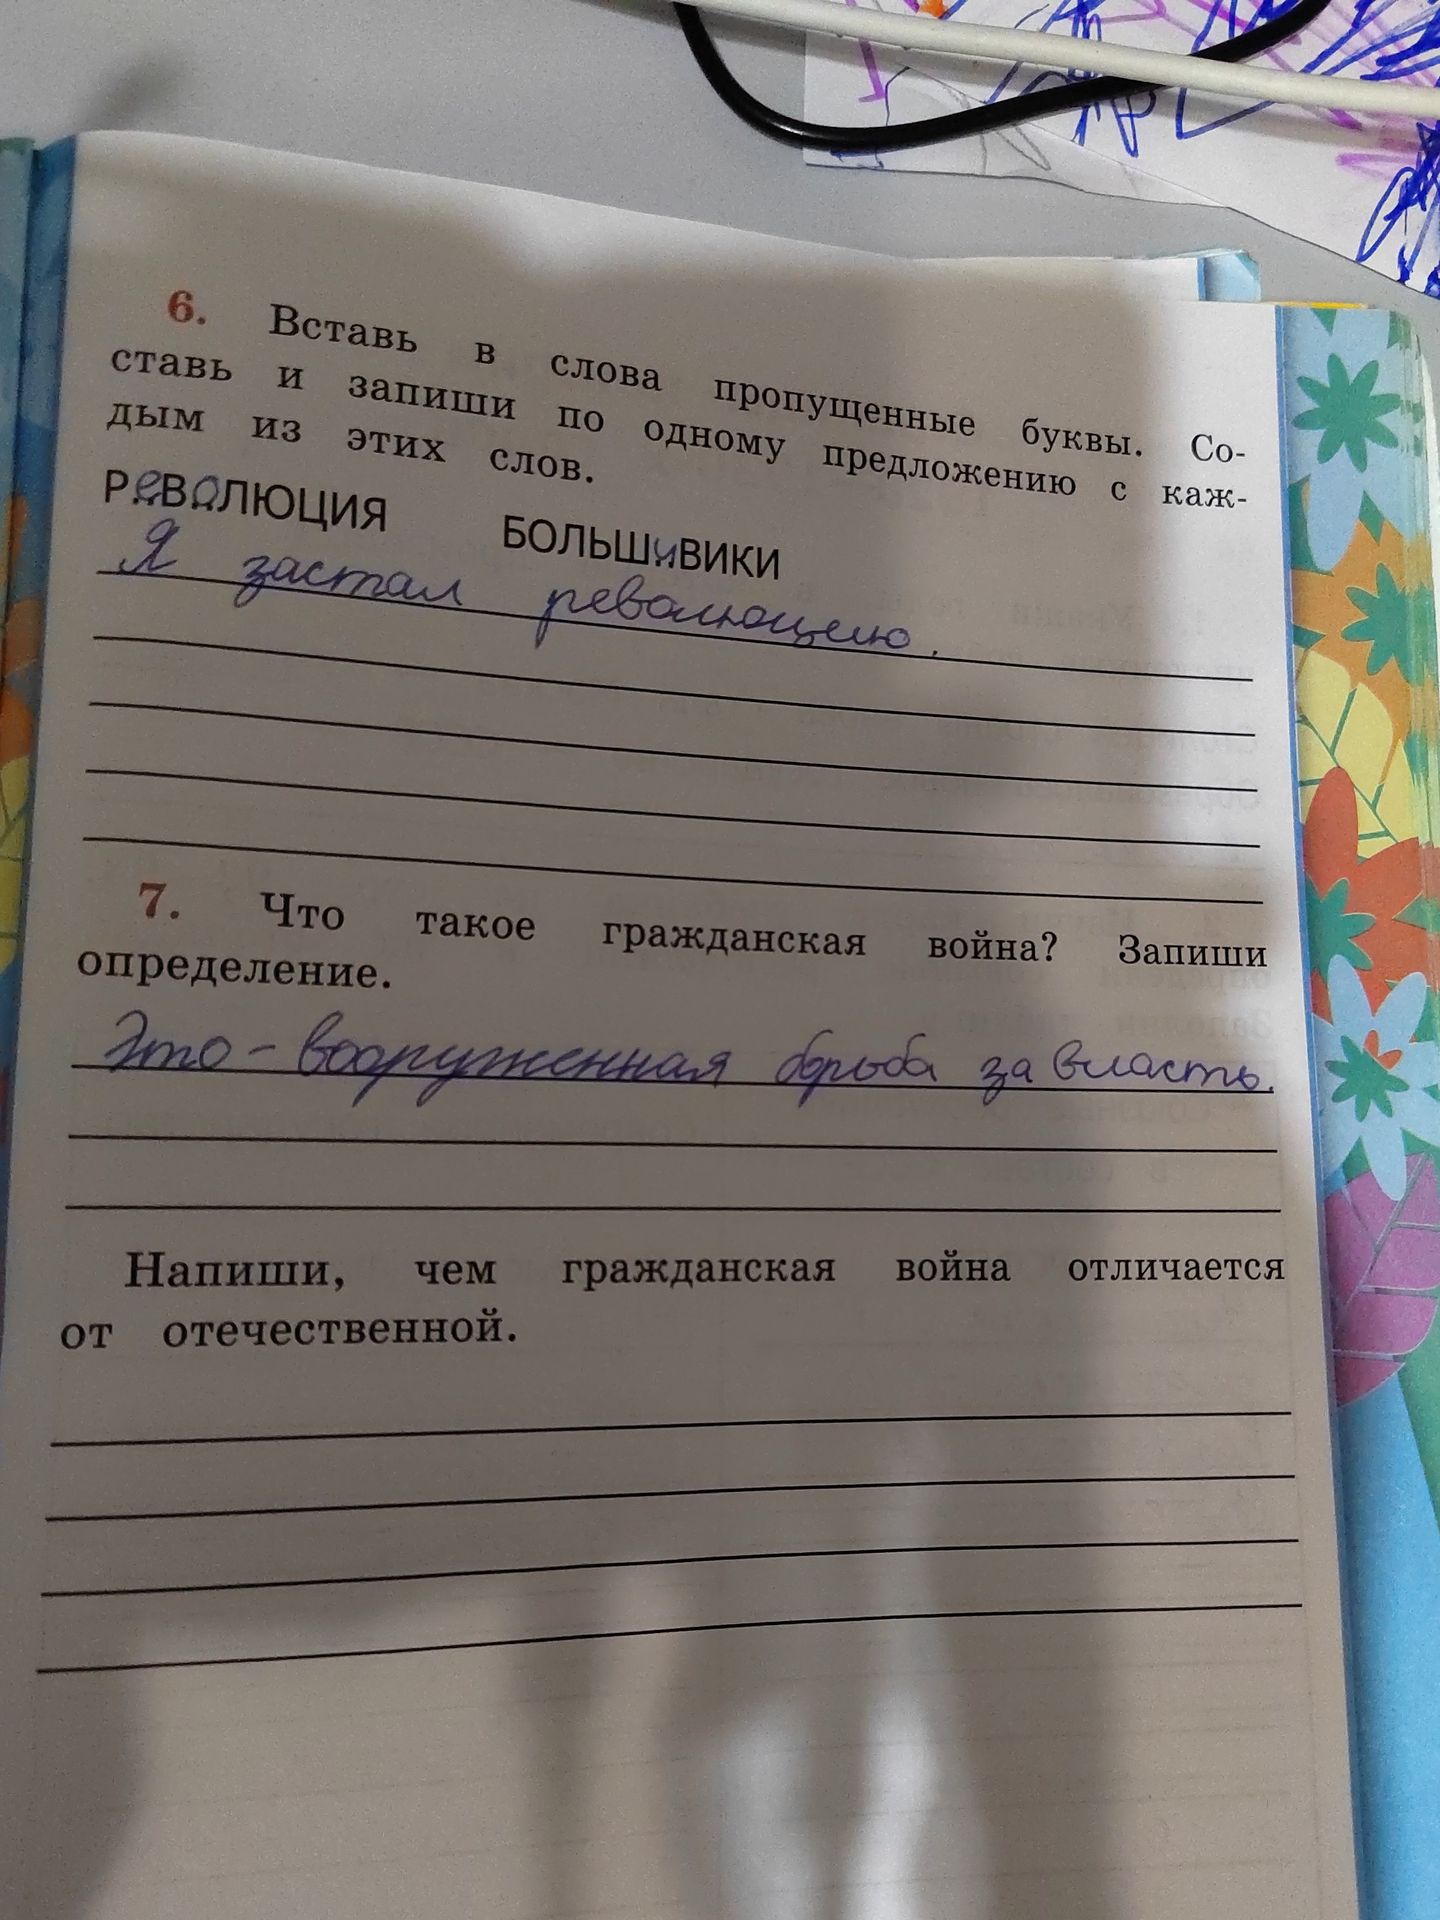 6. Вставь в слова пропущенные буквы. Со-
ставь и запиши по одному предложению с каж-
дым из этих слов.
РеВоЛЮЦИЯ БОЛЬШиВИКИ
Я застал революцию.
7. Что такое гражданская война? Запиши
определение.
Это - вооруженная борьба за власть.
Напиши, чем гражданская война отличается
от отечественной.